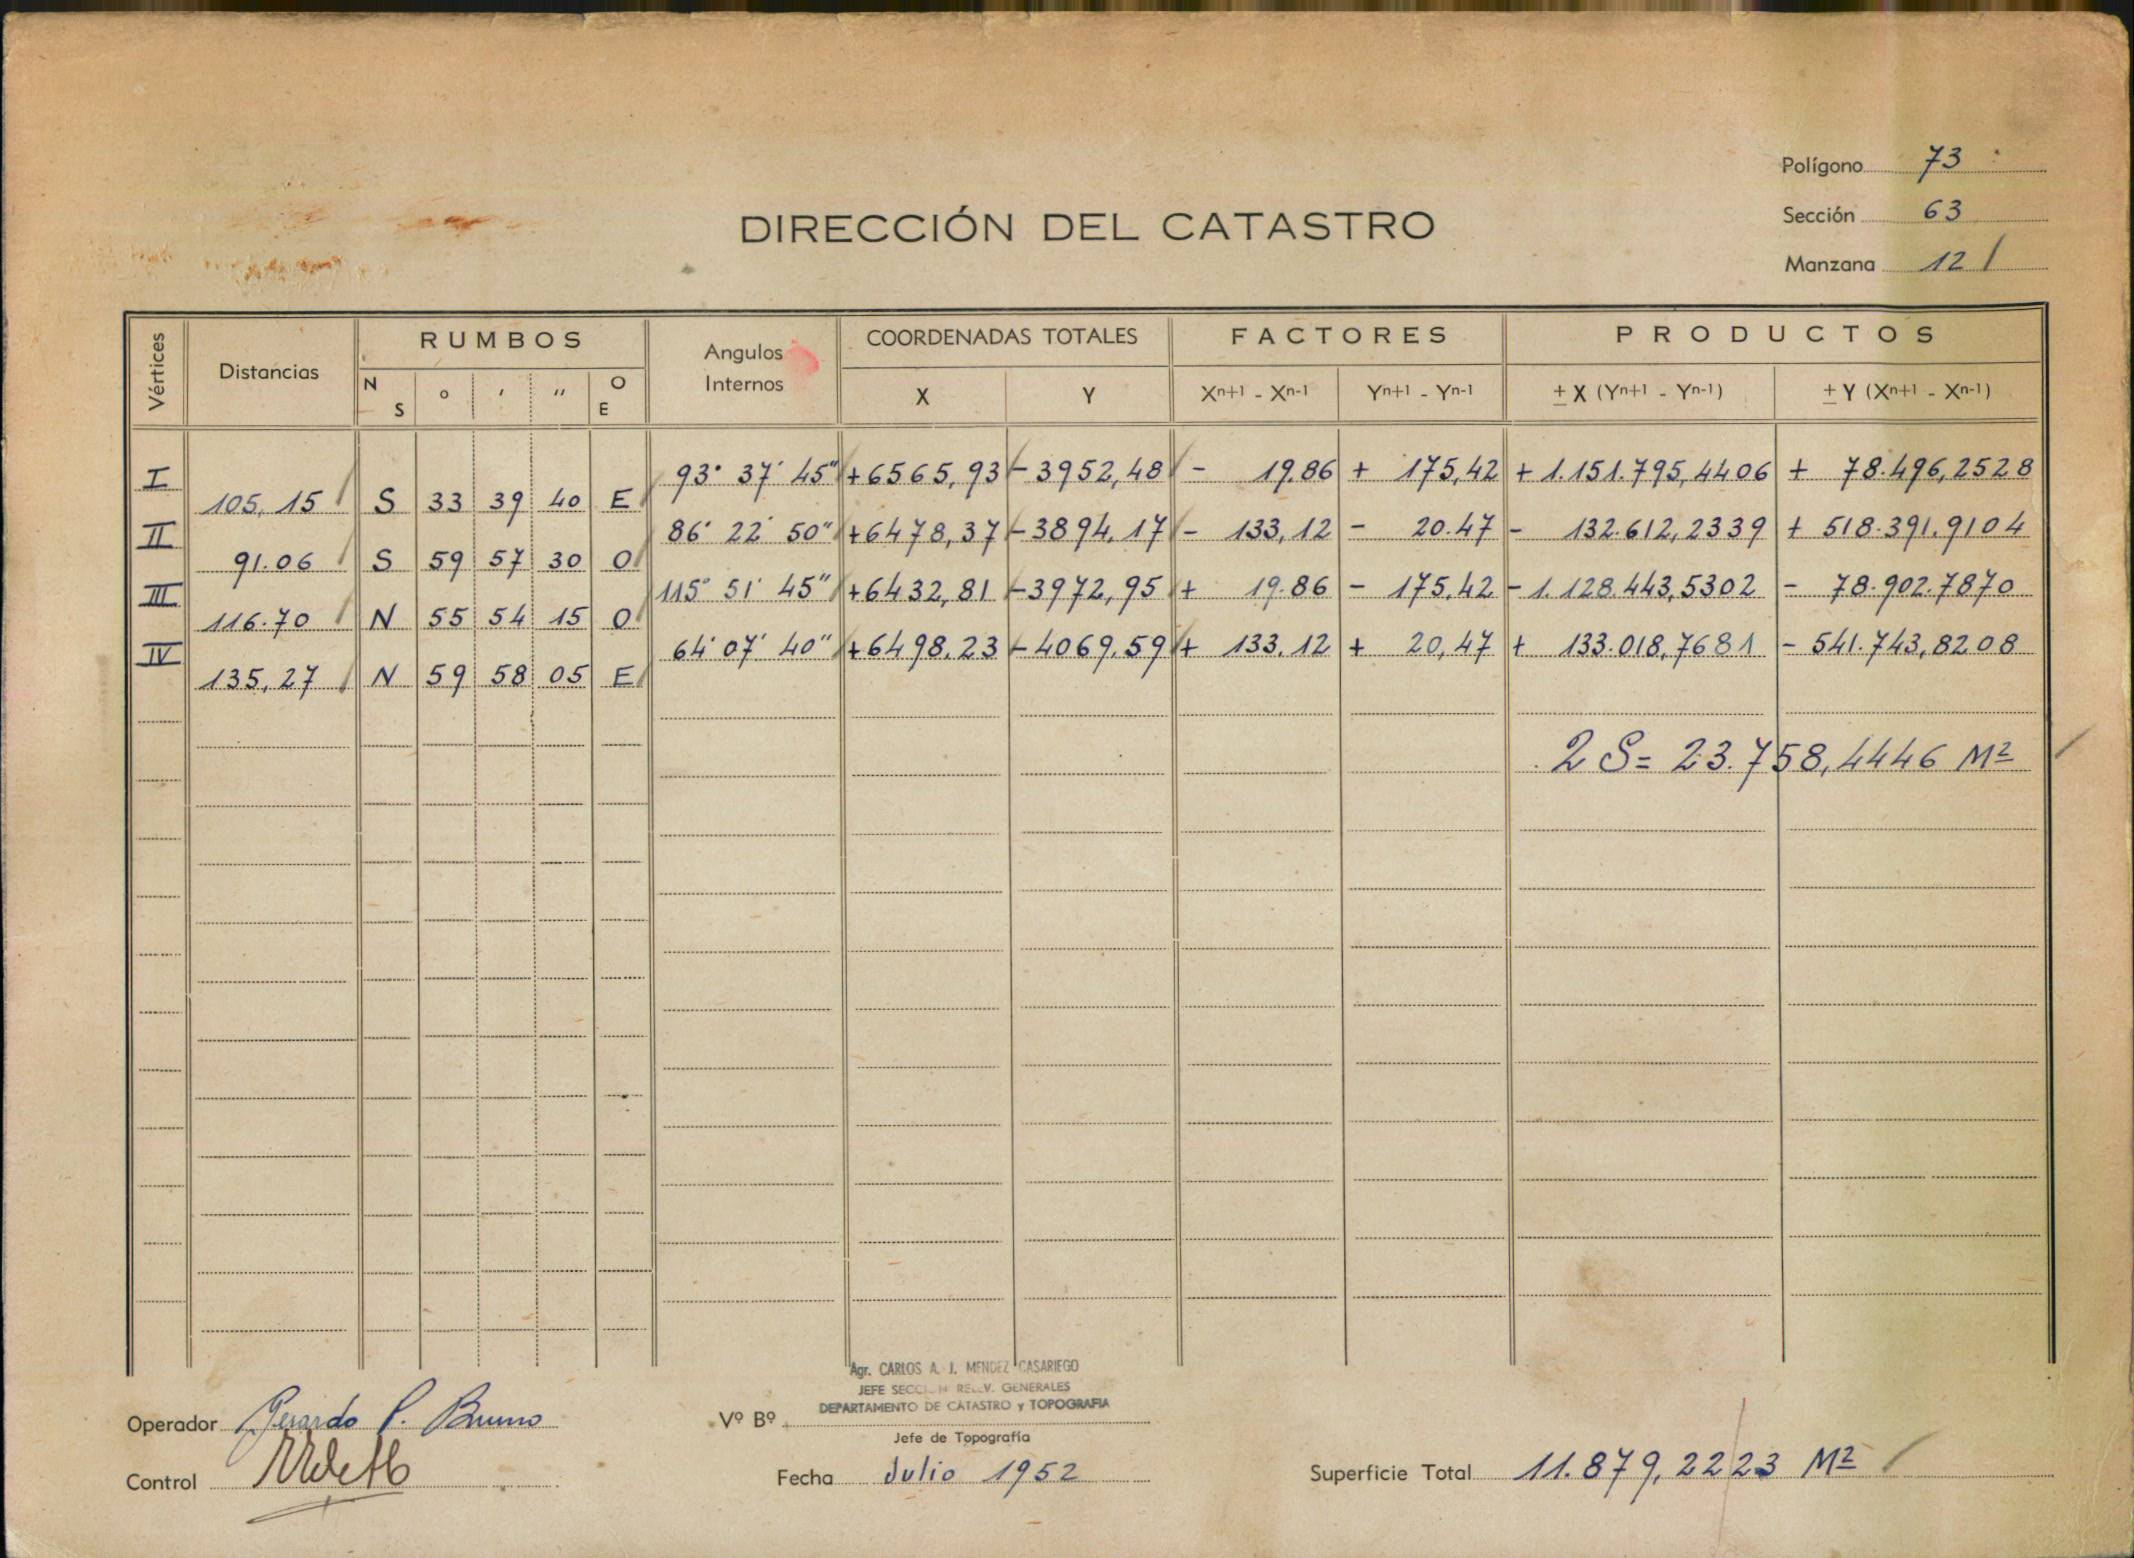 Polígono 73
Sección 63
Manzana 12 /
DIRECCIÓN DEL CATASTRO
Vértices Distancias RUMBOS Angulos Internos COORDENADAS TOTALES FACTORES PRODUCTOS
N S ° ′ ″ O E X Y Xn+1 - Xn-1 Yn+1 - Yn-1 ± X (Yn+1 - Yn-1) ± Y (Xn+1 - Xn-1)
I 93° 37′ 45″ +6565,93 -3952,48 - 19.86 + 175,42 + 1.151.795,4406 + 78.496,2528
105,15 S 33 39 40 E
II 86° 22′ 50″ +6478,37 -3894,17 - 133,12 - 20.47 - 132.612,2339 + 518.391.9104
91.06 S 59 57 30 O
III 115° 51′ 45″ +6432,81 -3972,95 + 19.86 - 175,42 - 1.128.443,5302 - 78.902.7870
116.70 N 55 54 15 O
IV 64° 07′ 40″ +6498,23 -4069,59 + 133,12 + 20,47 + 133.018,7681 - 541.743,8208
135,27 N 59 58 05 E
2 S = 23.758,4446 M²
Agr. CARLOS A. J. MENDEZ CASARIEGO
JEFE SECCION RELEV. GENERALES
DEPARTAMENTO DE CATASTRO y TOPOGRAFIA
Operador Gerardo P. Bruno
Vº Bº
Jefe de Topografía
Control
Fecha Julio 1952
Superficie Total 11.879,2223 M²